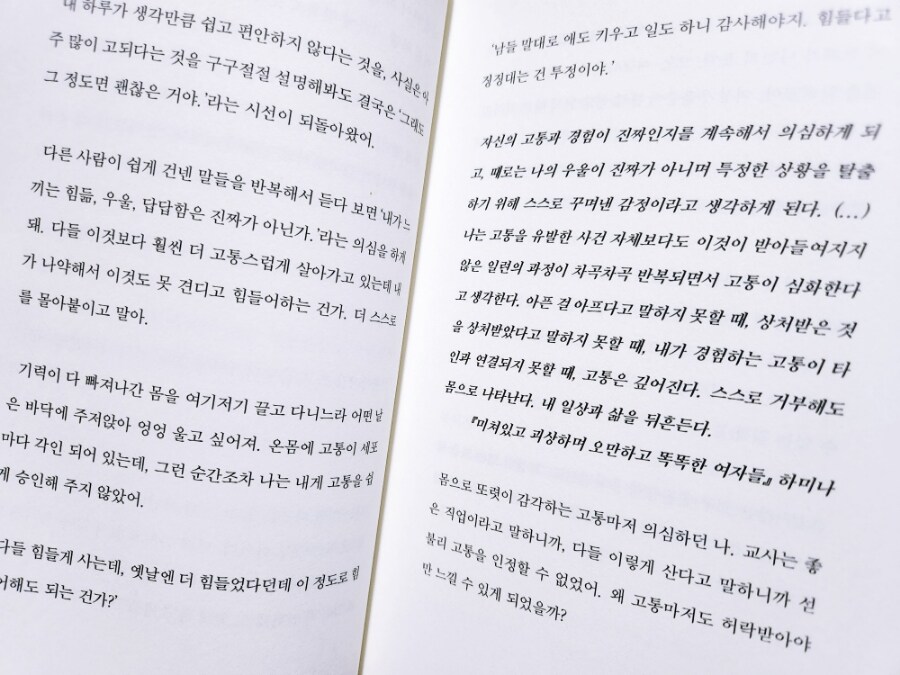 내 하루가 생각만큼 쉽고 편안하지 않다는 것을, 사실은 아
주 많이 고되다는 것을 구구절절 설명해봐도 결국은 '그래도
그 정도면 괜찮은 거야.'라는 시선이 되돌아왔어.
다른 사람이 쉽게 건넨 말들을 반복해서 듣다 보면 '내가 느
끼는 힘듦, 우울, 답답함은 진짜가 아닌가.'라는 의심을 하게
돼. 다들 이것보다 훨씬 더 고통스럽게 살아가고 있는데 내
가 나약해서 이것도 못 견디고 힘들어하는 건가. 더 스스로
를 몰아붙이고 말아.
기력이 다 빠져나간 몸을 여기저기 끌고 다니느라 어떤 날
은 바닥에 주저앉아 엉엉 울고 싶어져. 온몸에 고통이 세포
마다 각인 되어 있는데, 그런 순간조차 나는 내게 고통을 쉽
게 승인해 주지 않았어.
다들 힘들게 사는데, 옛날엔 더 힘들었다던데 이 정도로 힘
어해도 되는 건가?'
'남들 말대로 애도 키우고 일도 하니 감사해야지. 힘들다고
징징대는 건 투정이야.'
자신의 고통과 경험이 진짜인지를 계속해서 의심하게 되
고, 때로는 나의 우울이 진짜가 아니며 특정한 상황을 탈출
하기 위해 스스로 꾸며낸 감정이라고 생각하게 된다. (…)
나는 고통을 유발한 사건 자체보다도 이것이 받아들여지지
않은 일련의 과정이 차곡차곡 반복되면서 고통이 심화한다
고 생각한다. 아픈 걸 아프다고 말하지 못할 때, 상처받은 것
을 상처받았다고 말하지 못할 때, 내가 경험하는 고통이 타
인과 연결되지 못할 때, 고통은 깊어진다. 스스로 거부해도
몸으로 나타난다. 내 일상과 삶을 뒤흔든다.
『미쳐있고 괴상하며 오만하고 똑똑한 여자들』 하미나
몸으로 또렷이 감각하는 고통마저 의심하던 나. 교사는 좋
은 직업이라고 말하니까, 다들 이렇게 산다고 말하니까 섣
불리 고통을 인정할 수 없었어. 왜 고통마저도 허락받아야
만 느낄 수 있게 되었을까?